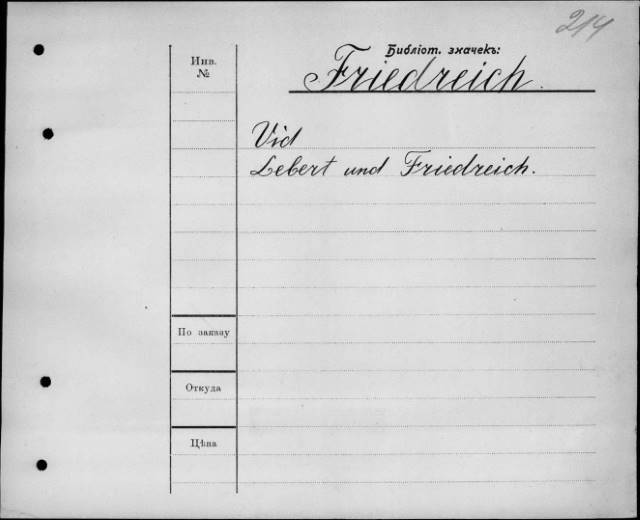 214
Библіот. значекъ:
Friedreich.
Инв.
№
Vid
Lebert und Friedreich.
По заказу
Откуда
Цѣна